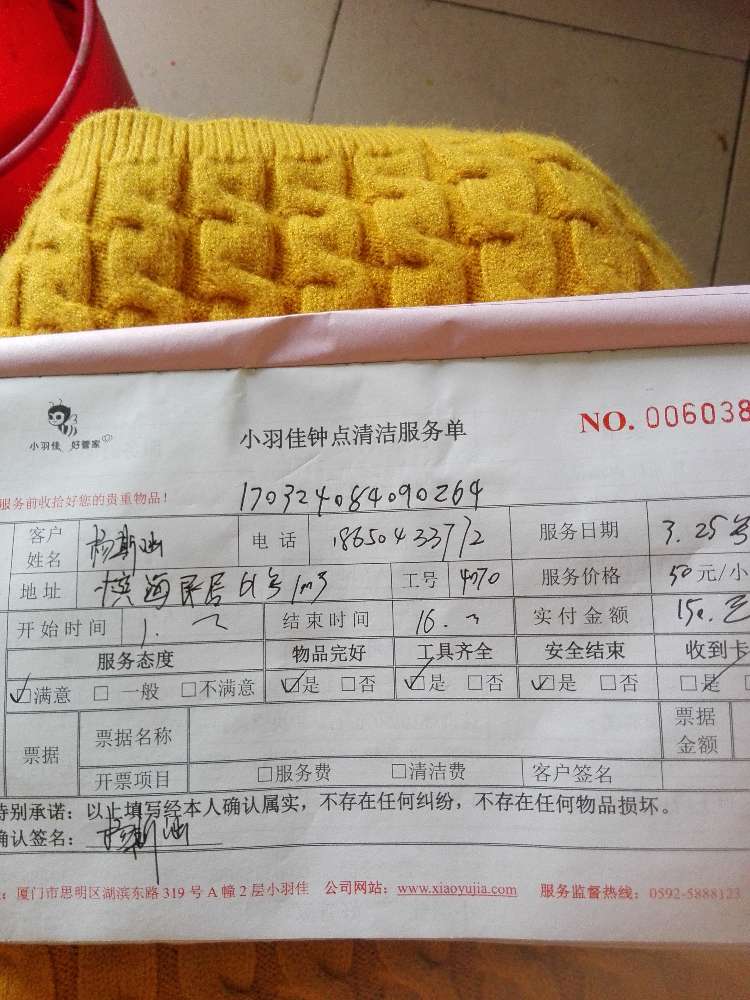 小羽佳 好管家
小羽佳钟点清洁服务单
NO. 006038
服务前收拾好您的贵重物品!
170324084090264
客户姓名 杨斯涵 电话 18650433772 服务日期 3.25号
地址 居 61号 工号 4070 服务价格 50元/小
开始时间 1. 结束时间 16. 实付金额 150.元
服务态度 物品完好 工具齐全 安全结束 收到卡
☑满意 □一般 □不满意 ☑是 □否 ☑是 □否 ☑是 □否 ☑是
票据 票据名称 票据金额
开票项目 □服务费 □清洁费 客户签名
特别承诺:以上填写经本人确认属实,不存在任何纠纷,不存在任何物品损坏。
确认签名:杨斯涵
:厦门市思明区湖滨东路 319 号 A 幢 2 层小羽佳 公司网站:www.xiaoyujia.com 服务监督热线:0592-5888123